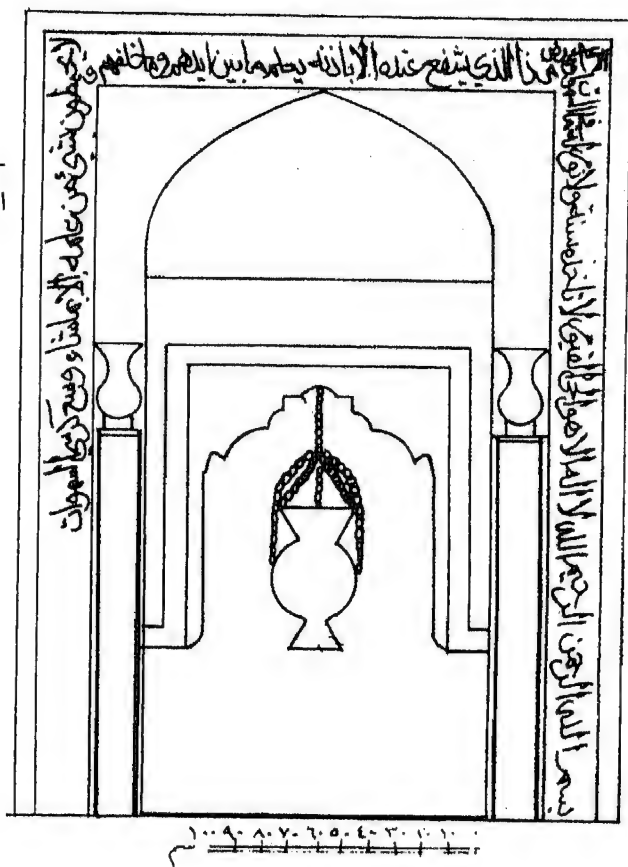 بسم الله الرحمن الرحيم الله لا اله الا هو الحي القيوم لا تاخذه سنة ولا نوم له ما في السموات
من ذا الذي يشفع عنده الا باذنه يعلم ما بين ايديهم وما خلفهم و
لا يحيطون بشيء من علمه الا بما شاء وسع كرسيه السموات
١٠٠ ٩٠ ٨٠ ٧٠ ٦٠ ٥٠ ٤٠ ٣٠ ٢٠ ١٠ ٠